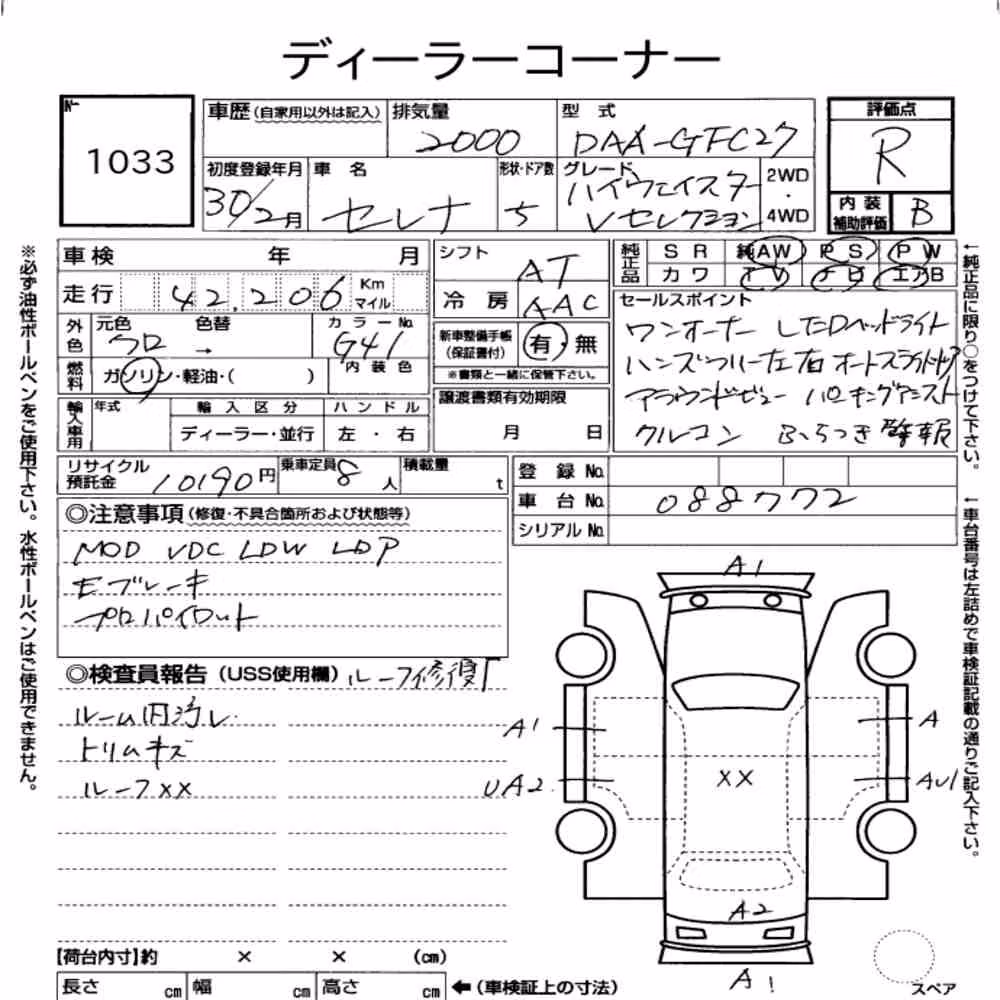 ディーラーコーナー
No
1033
車歴(自家用以外は記入)
排気量
2000
型 式
DAA-GFC27
評価点
R
初度登録年月
30/2月
車 名
セレナ
形状・ドア数
5
グレード
ハイウェイスター
Vセレクション
2WD
・
4WD
内 装
補助評価
B
車検 年 月
走行 42,206 Km
マイル
シフト
AT
冷 房
AAC
純正品
S R 純AW P S P W
カ ワ T V ナ ビ エアB
外色
元色 色替
クロ →
カ ラ ー No.
G41
内 装 色
燃料
ガソリン・軽油・( )
新車整備手帳
(保証書付)
有・無
※書類と一緒に保管下さい。
セールスポイント
ワンオーナー LEDヘッドライト
ハンズフリー左右オートスライドドア
アラウンドビュー パーキングアシスト
クルコン ふらつき警報
輸入車用
年式
輸 入 区 分
ハ ン ド ル
ディーラー・並行
左 ・ 右
譲渡書類有効期限
月 日
リサイクル
預託金
10190円
乗車定員
8人
積載量
t
登 録 No.
車 台 No.
088772
シリアル No.
◎注意事項(修復・不具合箇所および状態等)
MOD VDC LDW LDP
Eブレーキ
プロパイロット
◎検査員報告(USS使用欄)ルーフ修復歴
ルーム内汚レ
トリムキズ
ルーフXX
A1
A1
A
UA2
XX
AU1
A2
A1
スペア
【荷台内寸】約 × × (cm)
長さ cm 幅 cm 高さ cm ←(車検証上の寸法)
※必ず油性ボールペンをご使用下さい。水性ボールペンはご使用できません。
←純正品に限り○をつけて下さい。
←車台番号は左詰めで車検証記載の通りご記入下さい。